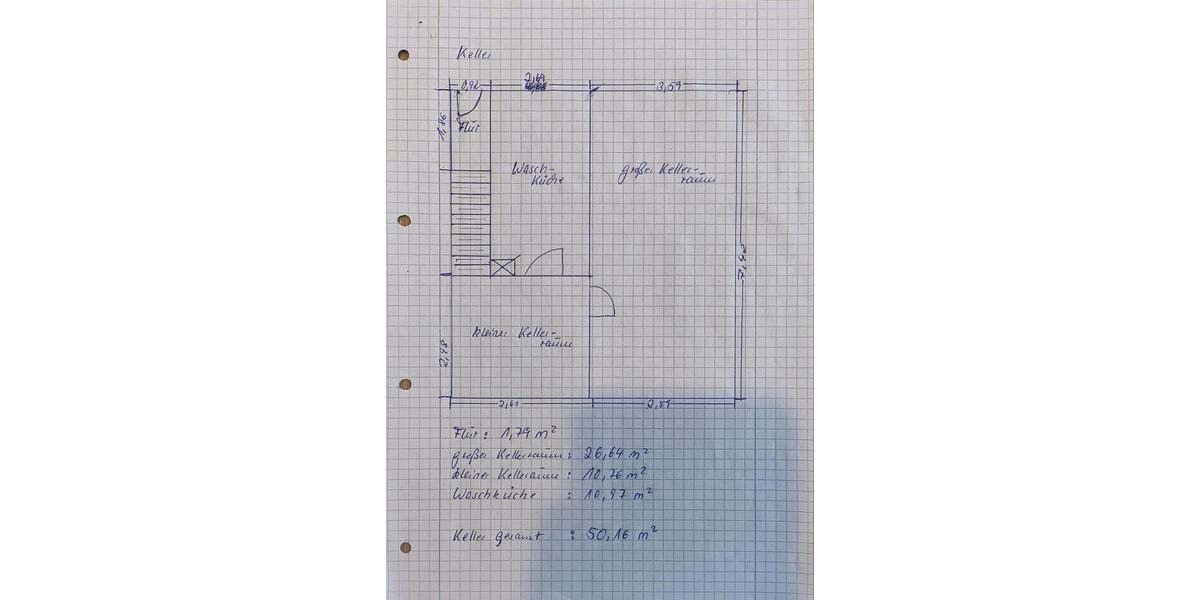 Keller
0,92
2,69
3,59
Flur
Wasch-
küche
großer Keller-
raum
kleiner Keller-
raum
Flur: 1,79 m²
großer Kellerraum: 26,64 m²
kleiner Kellerraum: 10,76 m²
Waschküche : 10,97 m²
Keller gesamt : 50,16 m²